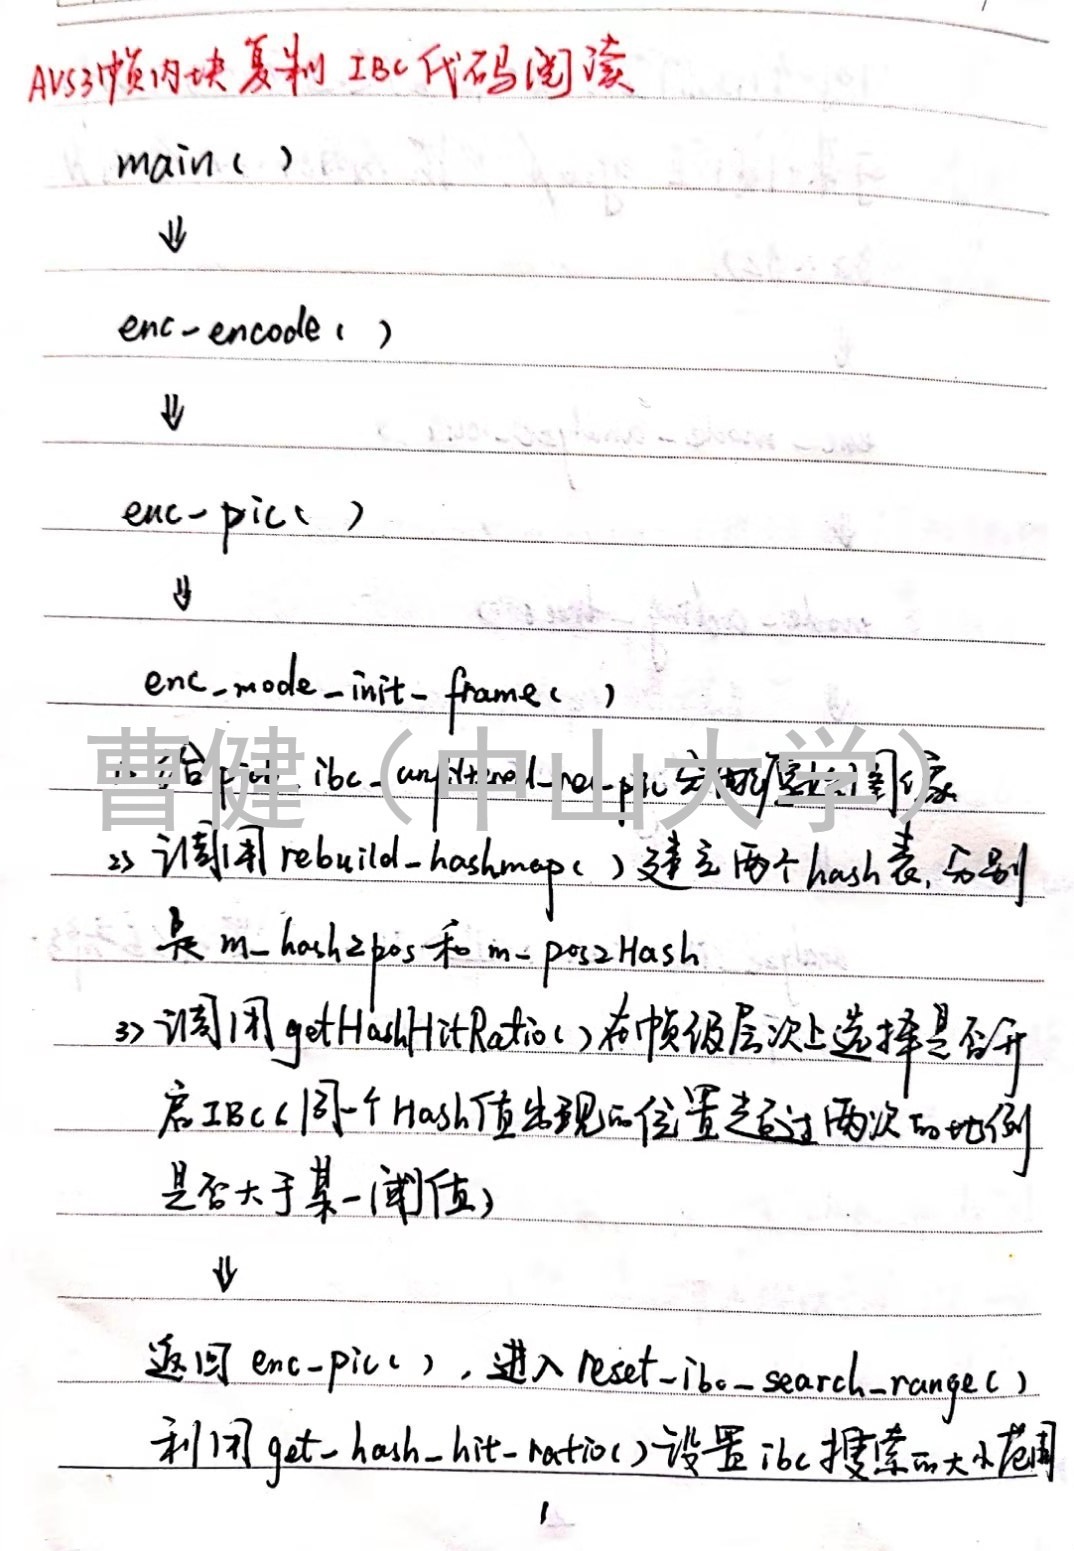 AVS3帧内块复制 IBC 代码阅读
main( )
⇓
enc-encode( )
⇓
enc-pic( )
⇓
enc_mode_init_frame( )
曹健（中山大学）
1> 给pic_ibc_unfiltered_rec_pic 分配原始图像
2> 调用 rebuild-hashmap( ) 建立两个hash表, 分别
是 m_hash2pos 和 m_pos2Hash
3> 调用 getHashHitRatio( ) 在帧级层次上选择是否开
启IBC(同一个Hash值出现的位置超过两次的比例
是否大于某一阈值)
⇓
返回 enc-pic( ), 进入 reset_ibc_search_range( )
利用 get_hash_hit_ratio( ) 设置 ibc 搜索的大小范围
1